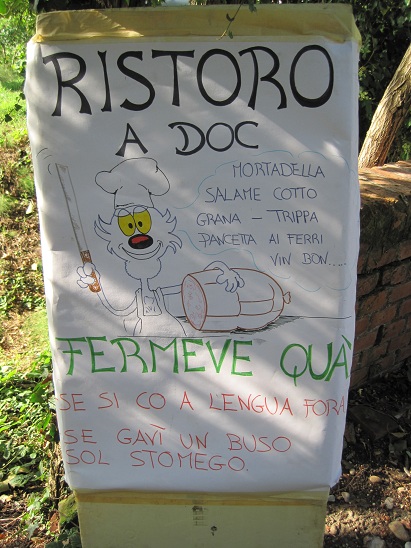 RISTORO
A DOC
MORTADELLA
SALAME COTTO
GRANA - TRIPPA
PANCETTA AI FERRI
VIN BON.....
FERMEVE QUÀ
SE SI CO A LENGUA FORA
SE GAVÌ UN BUSO
SOL STOMEGO.